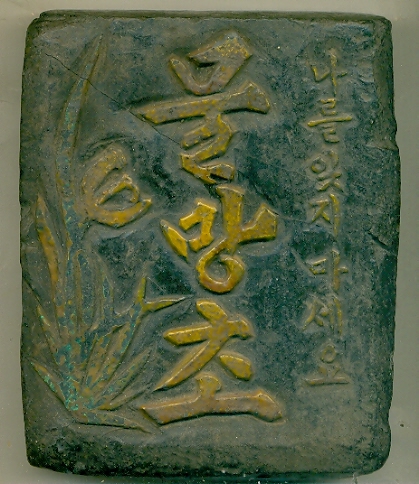 나를 잊지 마세요
물망초